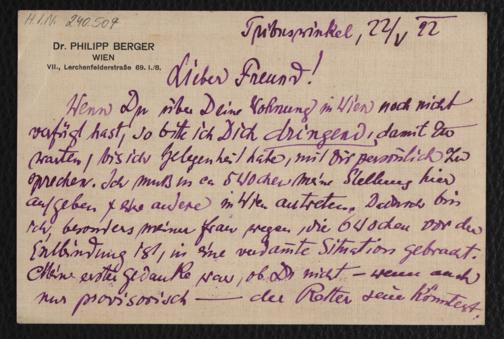 H.I.N. 240.504
Dr. PHILIPP BERGER
WIEN
VII., Lerchenfelderstraße 69. I./8.
Tribuswinkel, 22/V 22
Lieber Freund!
Wenn Du über Deine Wohnung in Wien noch nicht
verfügt hast, so bitte ich Dich dringend, damit zu
warten, bis ich Gelegenheit habe, mit Dir persönlich zu
sprechen. Ich muß in ca 5 Wochen meine Stellung hier
aufgeben & eine andere in Wien antreten. Dadurch bin
ich, besonders meiner Frau wegen, die 6 Wochen vor der
Entbindung ist, in eine verdammte Situation gebracht.
Mein erster Gedanke war, ob Du nicht – wenn auch
nur provisorisch – der Retter sein könntest.